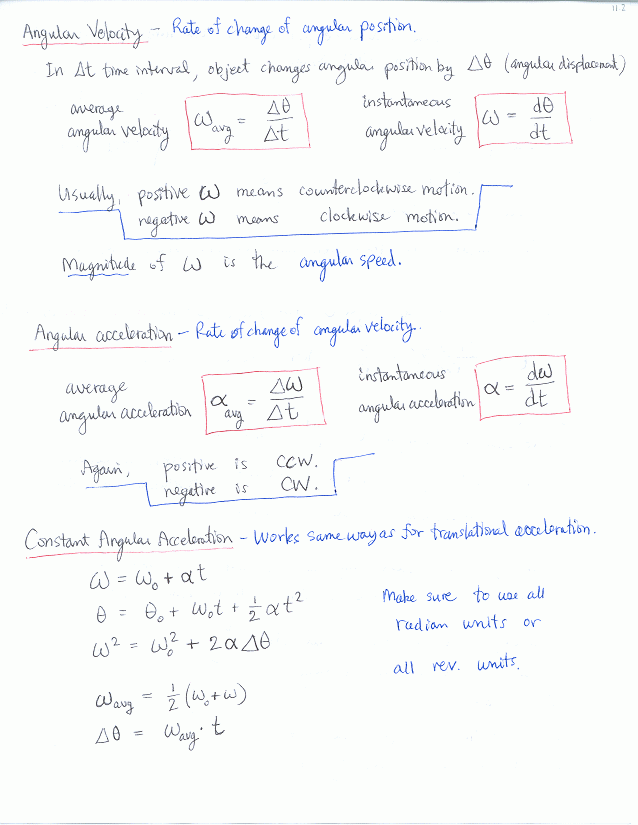 11.2
Angular Velocity - Rate of change of angular position.
In Δt time interval, object changes angular position by Δθ (angular displacement)
average angular velocity ω_avg = Δθ/Δt instantaneous angular velocity ω = dθ/dt
Usually, positive ω means counterclockwise motion.
negative ω means clockwise motion.
Magnitude of ω is the angular speed.
Angular acceleration - Rate of change of angular velocity.
average angular acceleration α_avg = Δω/Δt instantaneous angular acceleration α = dω/dt
Again, positive is CCW.
negative is CW.
Constant Angular Acceleration - Works same way as for translational acceleration.
ω = ω₀ + αt
θ = θ₀ + ω₀t + ½ αt²
ω² = ω₀² + 2αΔθ
ω_avg = ½ (ω₀+ω)
Δθ = ω_avg · t
Make sure to use all
radian units or
all rev. units.